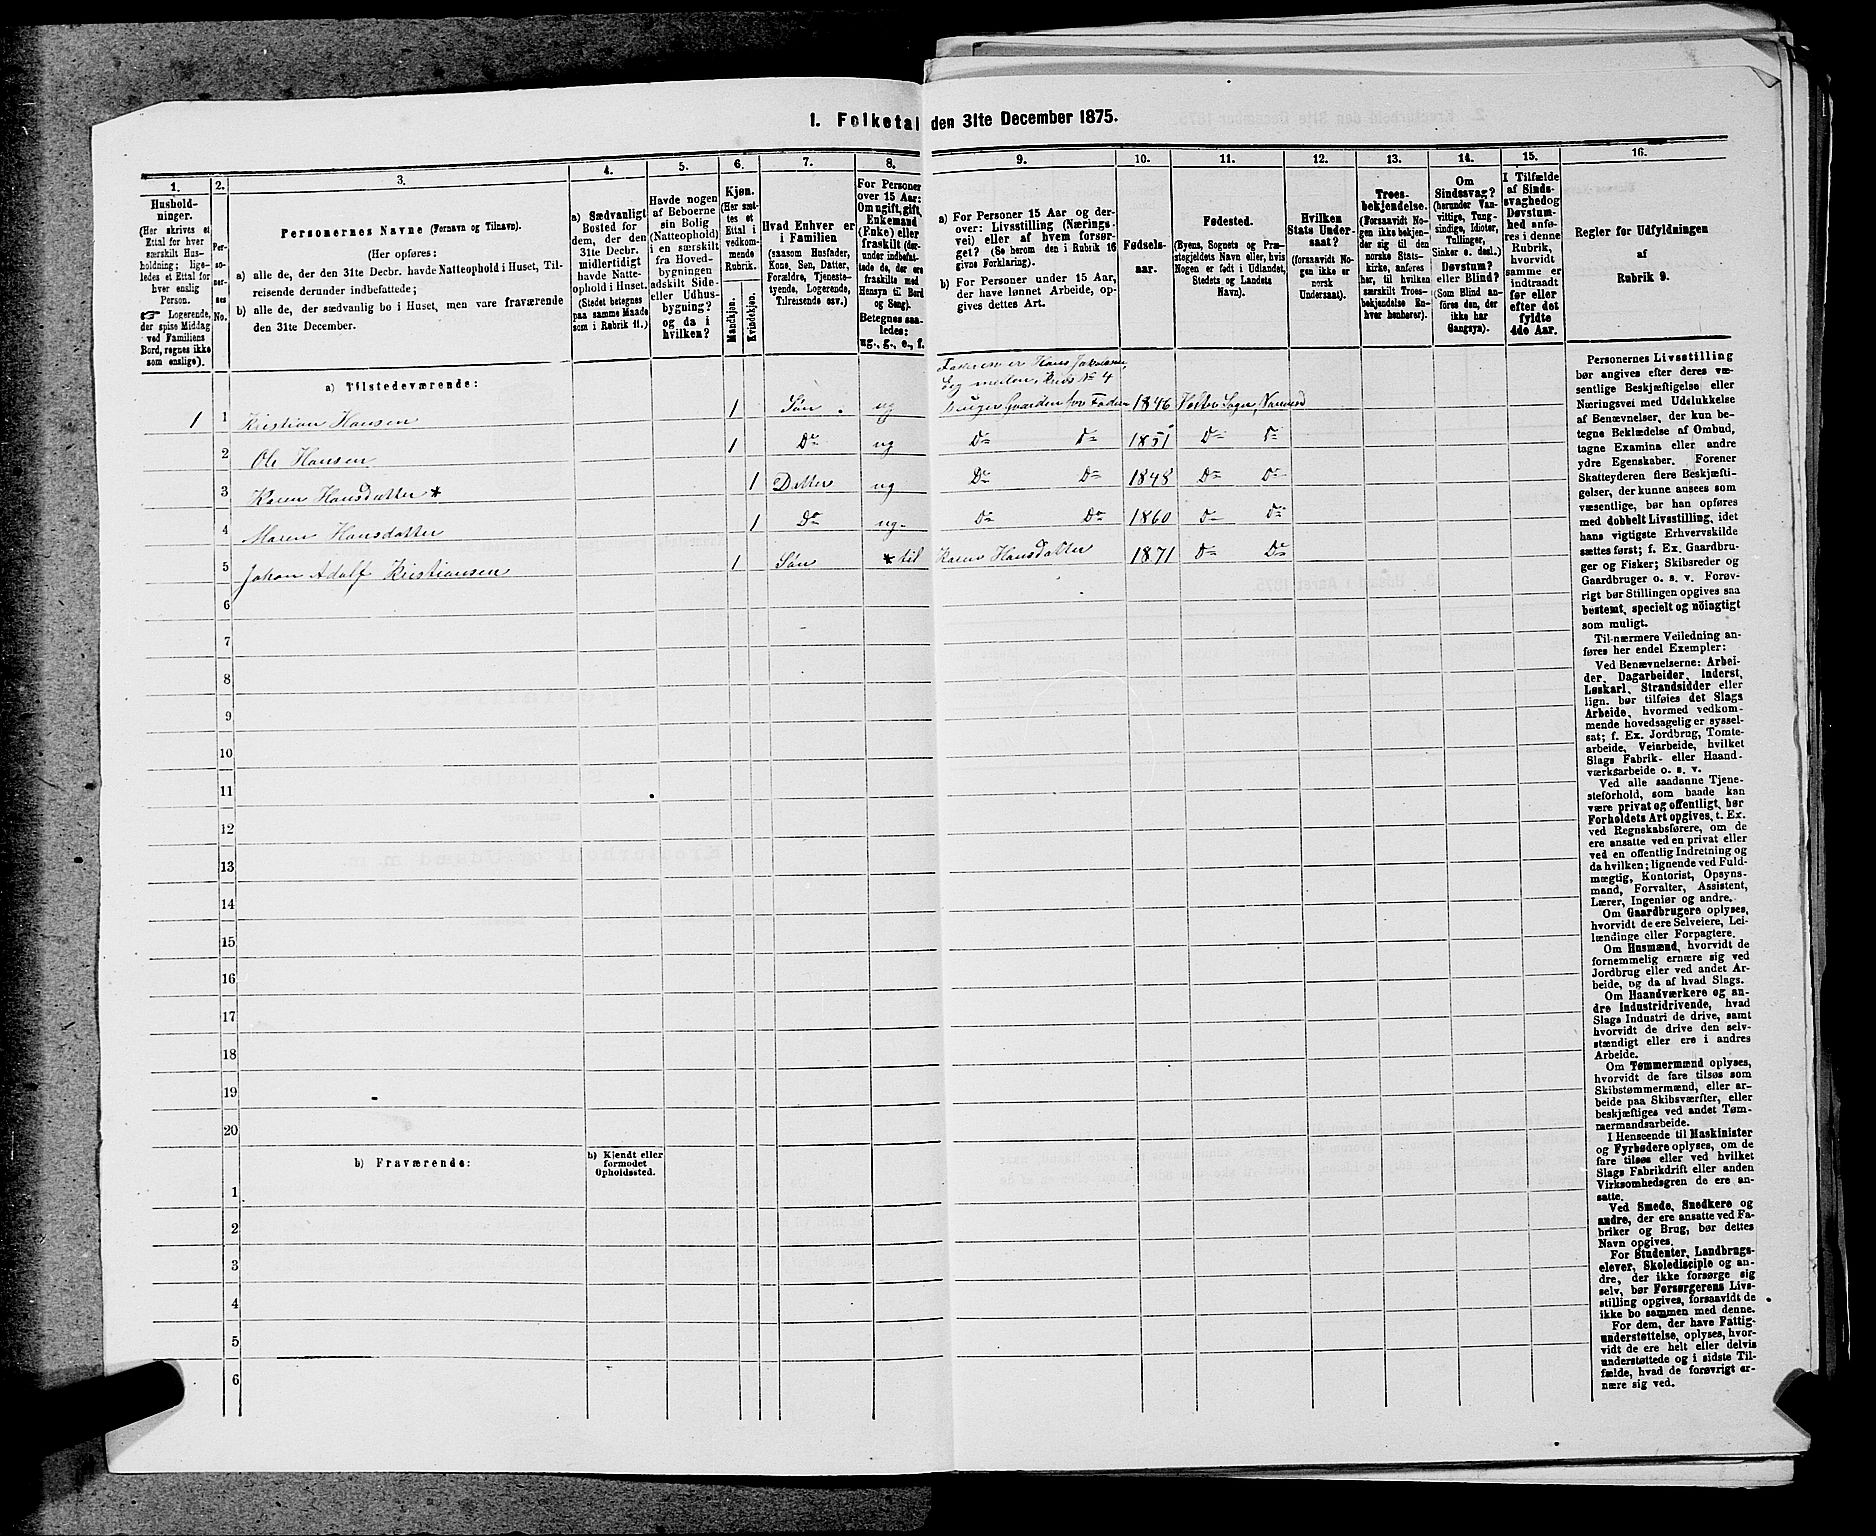 1. Folketal den 31te December 1875.
1. 2. 3. 4. 5. 6. 7. 8. 9. 10. 11. 12. 13. 14. 15. 16.
Hushold-
ninger.
(Her skrives et
Ettal for hver
særskilt Hus-
holdning; lige-
ledes et Ettal for
hver enslig
Person.
☞ Logerende,
der spise Middag
ved Familiens
Bord, regnes ikke
som enslige).
Per-
so-
ner-
nes
No.
Personernes Navne (Fornavn og Tilnavn).
(Her opføres:
a) alle de, der den 31te Decbr. havde Natteophold i Huset, Til-
reisende derunder indbefattede;
b) alle de, der sædvanlig bo i Huset, men vare fraværende
den 31te December.
a) Sædvanligt
Bosted for
dem, der den
31te Decbr.
midlertidigt
havde Natte-
ophold i Huset.
(Stedet betegnes
paa samme Maade
som i Rubrik 11.)
Havde nogen
af Beboerne
sin Bolig
(Natteophold)
i en særskilt
fra Hoved-
bygningen
adskilt Side-
eller Udhus-
bygning?
og da i
hvilken?
Kjøn.
(Her sæt-
tes et
Ettal i
vedkom-
mende
Rubrik.
Mandkjøn.
Kvindekjøn.
Hvad Enhver er
i Familien
(saasom Husfader,
Kone, Søn, Datter,
Forældre, Tjeneste-
tyende, Logerende,
Tilreisende osv.)
For Personer
over 15 Aar:
Om ugift, gift,
Enkemand
(Enke) eller
fraskilt (der-
under indbefat-
tede de, der ere
fraskilte med
Hensyn til Bord
og Seng).
Betegnes saa-
ledes:
ug., g., e., f.
a) For Personer 15 Aar og der-
over: Livsstilling (Nærings-
vei) eller af hvem forsør-
get? (Se herom den i Rubrik 16
givne Forklaring).
b) For Personer under 15 Aar,
der have lønnet Arbeide, op-
gives dettes Art.
Fødsels-
aar.
Fødested.
(Byens, Sognets og Præ-
stegjeldets Navn eller, hvis
Nogen er født i Udlandet,
Stedets og Landets
Navn).
Hvilken
Stats Under-
saat?
(forsaavidt No-
gen ikke er
norsk
Undersaat).
Troes-
bekjendelse.
(Forsaavidt No-
gen ikke bekjen-
der sig til den
norske Stats-
kirke, anføres
her, til hvilken
særskilt Troes-
bekjendelse En-
hver henhører).
Om
Sindssvag?
(herunder Van-
vittige, Tung-
sindige, Idioter,
Tullinger,
Sinker o. desl.)
Døvstum?
eller Blind?
(Som Blind an-
føres den, der
ikke har
Gangsyn).
I Tilfælde
af Sinds-
svaghed og
Døvstum-
hed anfø-
res i denne
Rubrik,
hvorvidt
samme er
indtraadt
før eller
efter det
fyldte
4de Aar.
Regler for Udfyldningen
af
Rubrik 9.
a) Tilstedeværende:
Faderen er Hans
4
1 1 Kristian Hansen 1 Søn ug bruger Gaarden for Faderen 1846
2 Ole Hansen 1 Do ug Do Do 1851 Do Do
3 Karen Hansdatter * 1 Datter ug Do Do 1848 Do Do
4 Maren Hansdatter 1 Do ug. Do Do 1860 Do Do
5 Johan Adolf Kristiansen 1 Søn * til Karen Hansdatter 1871 Do Do
6
7
8
9
10
11
12
13
14
15
16
17
18
19
20
b) Fraværende:
b) Kjendt eller
formodet
Opholdssted.
1
2
3
4
5
6
Personernes Livsstilling
bør angives efter deres væ-
sentlige Beskjæftigelse eller
Næringsvei med Udelukkelse
af Benævnelser, der kun be-
tegne Beklædelse af Ombud,
tagne Examina eller andre
ydre Egenskaber. Forener
Skatteyderen flere Beskjæfti-
gelser, der kunne ansees som
væsentlige, bør han opføres
med dobbelt Livsstilling, idet
hans vigtigste Erhvervskilde
sættes først; f. Ex. Gaardbru-
ger og Fisker; Skibsreder og
Gaardbruger o. s. v. Forøv-
rigt bør Stillingen opgives saa
bestemt, specielt og nöiagtigt
som muligt.
Til nærmere Veiledning an-
føres her endel Exempler:
Ved Benævnelserne: Arbei-
der, Dagarbeider, Inderst,
Løskarl, Strandsidder eller
lign. bør tilføies det Slags
Arbeide, hvormed vedkom-
mende hovedsagelig er syssel-
sat; f. Ex. Jordbrug, Tomte-
arbeide, Veiarbeide, hvilket
Slags Fabrik- eller Haand-
værksarbeide o. s. v.
Ved alle saadanne Tjene-
steforhold, som baade kan
være privat og offentligt, bør
Forholdets Art opgives, t. Ex.
ved Regnskabsførere, om de
ere ansatte ved en privat eller
ved en offentlig Indretning og
da hvilken; lignende ved Fuld-
mægtig, Kontorist, Opsyns-
mand, Forvalter, Assistent,
Lærer, Ingeniør og andre.
Om Gaardbrugere oplyses,
hvorvidt de ere Selveiere, Lei-
lændinge eller Forpagtere.
Om Husmænd, hvorvidt de
fornemmelig ernære sig ved
Jordbrug eller ved andet Ar-
beide, og da af hvad Slags.
Om Haandværkere og an-
dre Industridrivende, hvad
Slags Industri de drive, samt
hvorvidt de drive den selv-
stændigt eller ere i andres
Arbeide.
Om Tømmermænd oplyses,
hvorvidt de fare tilsøs som
Skibstømmermænd, eller ar-
beide paa Skibsværfter, eller
beskjæftiges ved andet Tøm-
mermandsarbeide.
I Henseende til Maskinister
og Fyrbødere oplyses, om de
fare tilsøs eller ved hvilket
Slags Fabrikdrift eller anden
Virksomhedsgren de ere an-
satte.
Ved Smede, Snedkere og
andre, der ere ansatte ved Fa-
briker og Brug, bør dettes
Navn opgives.
For Studenter, Landbrugs-
elever, Skoledisciple og an-
dre, der ikke forsørge sig
selv, bør Forsørgerens Livs-
stilling opgives, forsaavidt de
ikke bo sammen med denne.
For dem, der have Fattig-
understøttelse, oplyses, hvor-
vidt de ere helt eller delvis
understøttede og i sidste Til-
fælde, hvad de forøvrigt er-
nære sig ved.